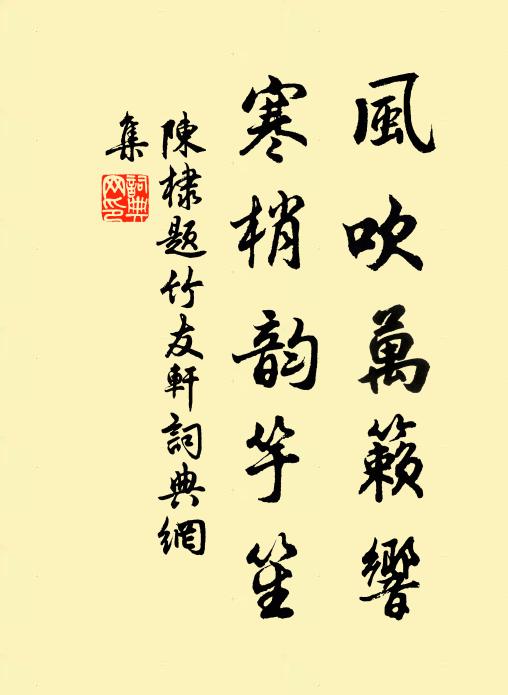 風吹萬籟響
寒梢韵竽笙
陳棣題竹友軒詞典網
集
詞典
网印